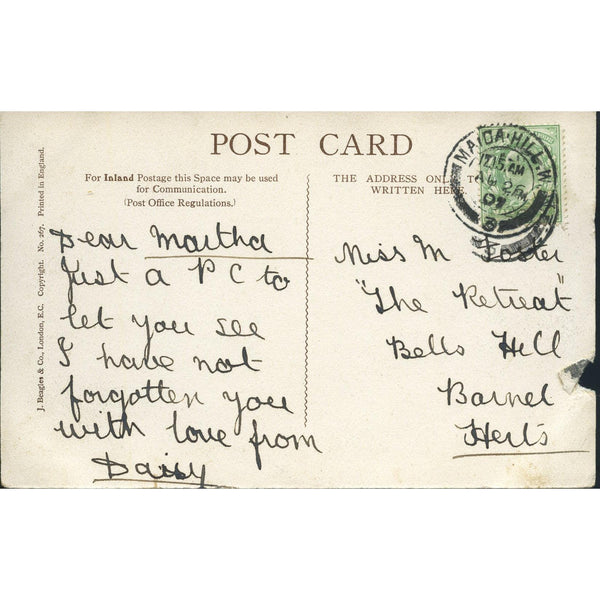 POST CARD
For Inland Postage this Space may be used
for Communication.
(Post Office Regulations.)
THE ADDRESS ONLY TO
WRITTEN HERE.
MAIDA·HILL·W.
12.15 AM
26
07
Dear Martha
Just a P C to
let you see
I have not
forgotten you
with love from
Daisy
Miss M Foster
"The Retreat"
Bells Hill
Barnet
Herts
J. Beagles & Co., London, E.C. Copyright. No. 267. Printed in England.